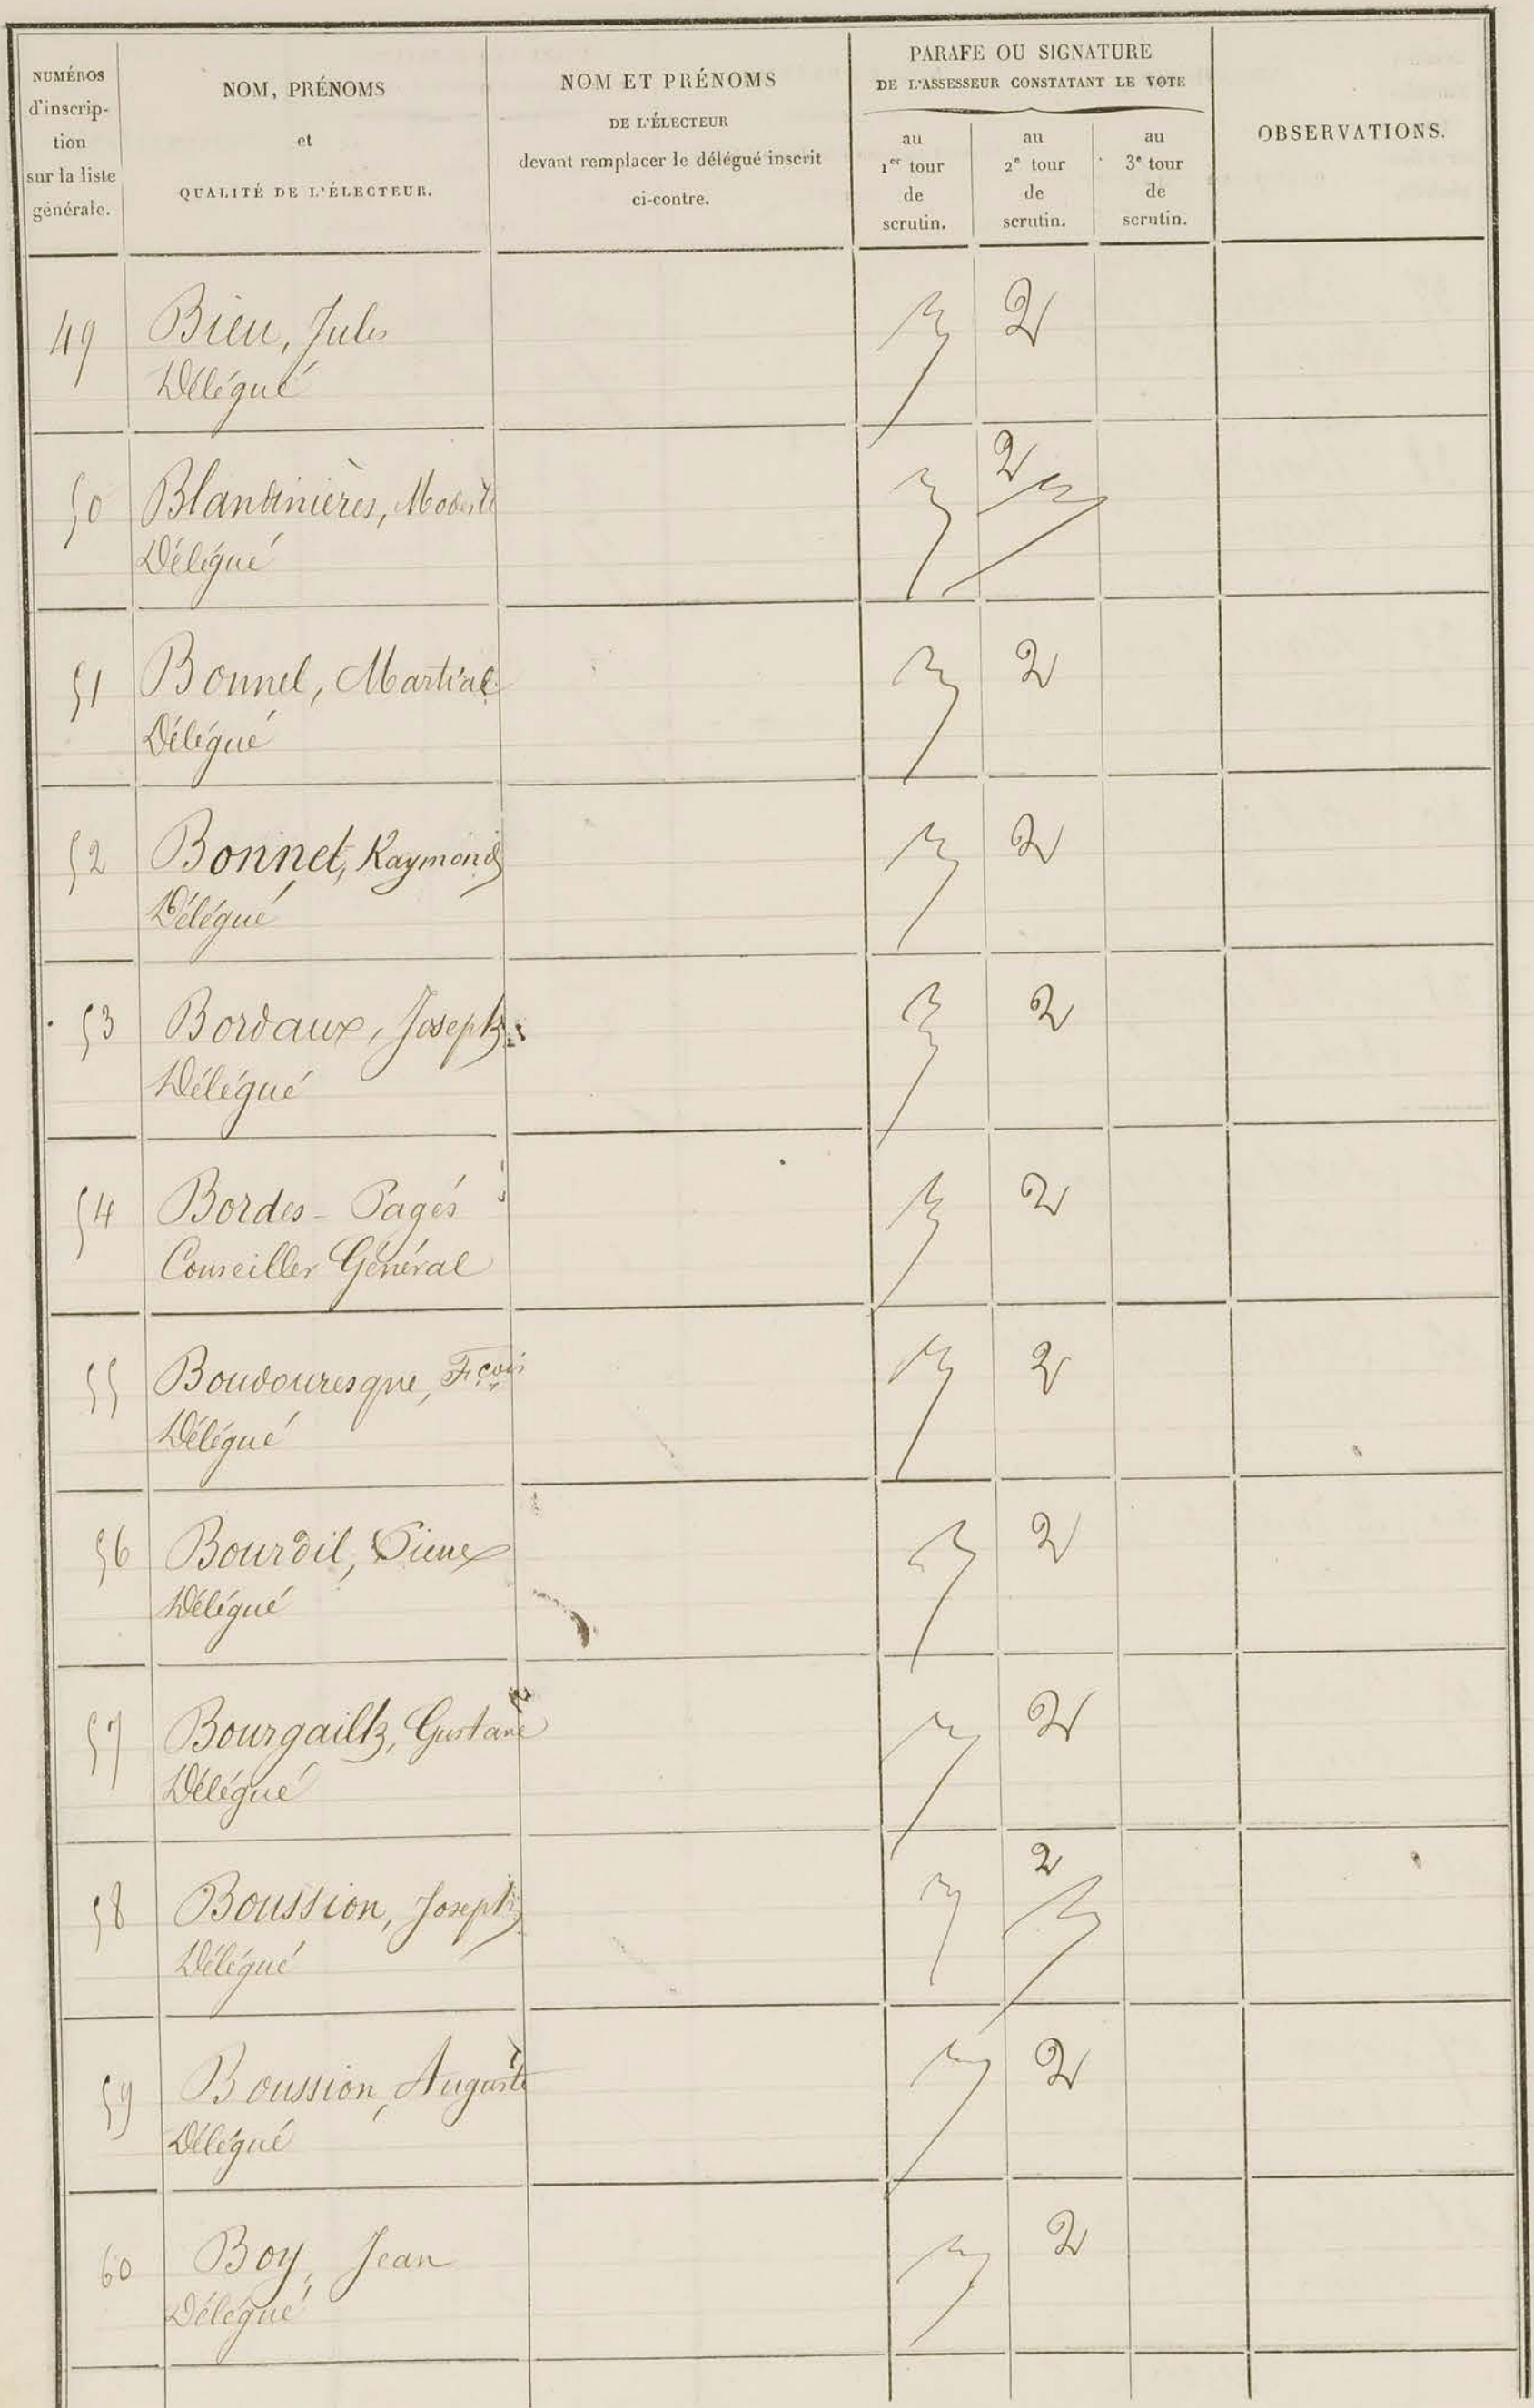 NUMÉROS
d'inscrip-
tion
sur la liste
générale.
NOM, PRÉNOMS
et
QUALITÉ DE L'ÉLECTEUR.
NOM ET PRÉNOMS
DE L'ÉLECTEUR
devant remplacer le délégué inscrit
ci-contre.
PARAFE OU SIGNATURE
DE L'ASSESSEUR CONSTATANT LE VOTE
au
1er tour
de
scrutin.
au
2e tour
de
scrutin.
au
3e tour
de
scrutin.
OBSERVATIONS.
49 Bieu, Jules 2
Délégué
50 Blandinières, Modeste 2
Délégué
51 Bonnel, Martial 2
Délégué
52 Bonnet, Raymond 2
Délégué
53 Bordaux, Joseph 2
Délégué
54 Bordes-Pagés 2
Conseiller Général
55 Boudouresque, Fçois 2
Délégué
56 Bourdil, Pierre 2
Délégué
57 Bourgailh, Gustave 2
Délégué
58 Boussion, Joseph 2
Délégué
59 Boussion, Auguste 2
Délégué
60 Boy, Jean 2
Délégué